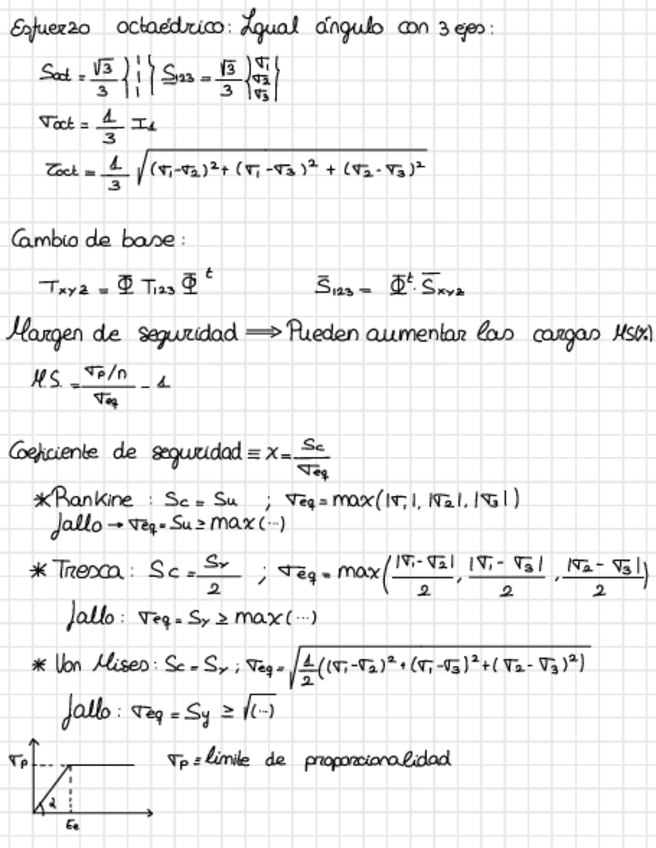 Esfuerzo octaédrico: Igual ángulo con 3 ejes:
Soct = √3/3 {1 1 1} S123 = √3/3 {σ1 σ2 σ3}
σoct = 1/3 I1
τoct = 1/3 √((σ1-σ2)² + (σ1-σ3)² + (σ2-σ3)²)
Cambio de base:
Txyz = Φ T123 Φ^t S̄123 = Φ^t · S̄xyz
Margen de seguridad ⟹ Pueden aumentar las cargas MS(%)
M.S. = (σp/n)/σeq - 1
Coeficiente de seguridad ≡ x = Sc/σeq
* Rankine : Sc = Su ; σeq = max(|σ1|, |σ2|, |σ3|)
fallo → σeq = Su ≥ max(...)
* Tresca : Sc = Sy/2 ; σeq = max(|σ1-σ2|/2, |σ1-σ3|/2, |σ2-σ3|/2)
fallo : σeq = Sy ≥ max(...)
* Von Mises: Sc = Sy ; σeq = √(1/2((σ1-σ2)² + (σ1-σ3)² + (σ2-σ3)²))
fallo : σeq = Sy ≥ √(...)
σp σp ≡ límite de proporcionalidad
Ee